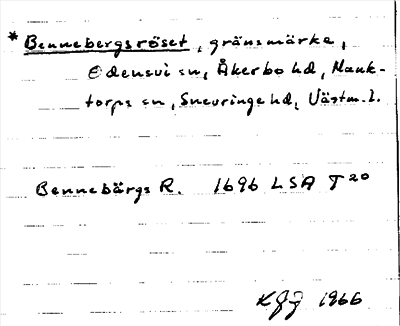 * Bennebergsröset, gränsmärke,
Odensvi sn, Åkerbo hd, Munk-
torps sn, Snevringe hd, Västm. l.
Bennebärgs R. 1696 LSA T 20
KGJ 1966